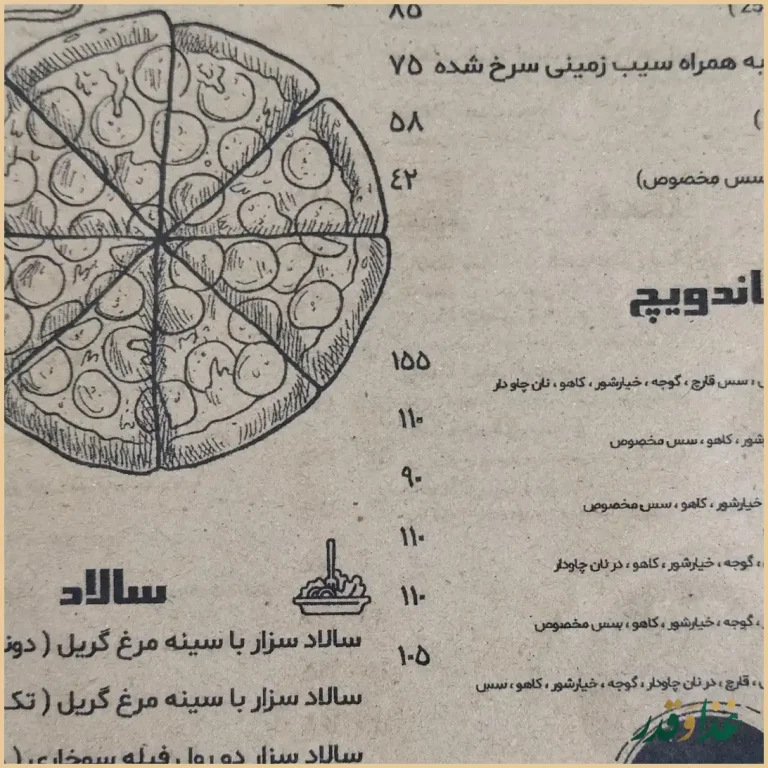 ۸۵
به همراه سیب زمینی سرخ شده ۷۵
۵۸
سس مخصوص) ۴۲
اندویچ
، سس قارچ ، گوجه ، خیارشور ، کاهو ، نان چاودار ۱۵۵
شور ، کاهو ، سس مخصوص ۱۱۰
خیارشور ، کاهو ، سس مخصوص ۹۰
، گوجه ، خیارشور ، کاهو ، در نان چاودار ۱۱۰
، گوجه ، خیارشور ، کاهو ، سس مخصوص ۱۱۰
، قارچ ، در نان چاودار ، گوجه ، خیارشور ، کاهو ، سس ۱۰۵
سالاد
سالاد سزار با سینه مرغ گریل ( دون
سالاد سزار با سینه مرغ گریل ( تک
سالاد سزار دو رول فیله سوخاری (
غذا و قدر